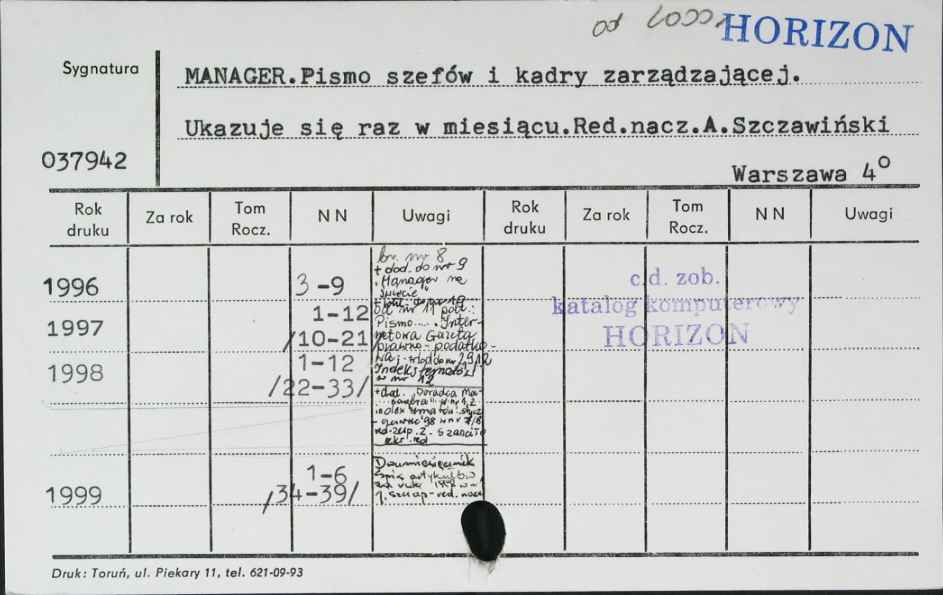 od 2000 r.
HORIZON
Sygnatura
MANAGER.Pismo szefów i kadry zarządzającej.
Ukazuje się raz w miesiącu.Red.nacz.A.Szczawiński
037942
Warszawa 4°
Rok druku Za rok Tom Rocz. N N Uwagi Rok druku Za rok Tom Rocz. N N Uwagi
br. nr 8
+ dod. do nr 9
"Manager na
świecie"
1996 3-9
c.d. zob.
katalog komputerowy
HORIZON
od nr 11 podt.:
Pismo.... Inter-
netowa Gazeta
prawno-podatko-
wa
1997 1-12
/10-21/
Indeks
w nr 12
1998 1-12
/22-33/
+ dod. "Doradca
w nr 1,2
index
czerwiec '98 w nr 7/8
sekr. red
Dwumiesięcznik
spis artykułów
1999 1-6
/34-39/
Druk: Toruń, ul. Piekary 11, tel. 621-09-93